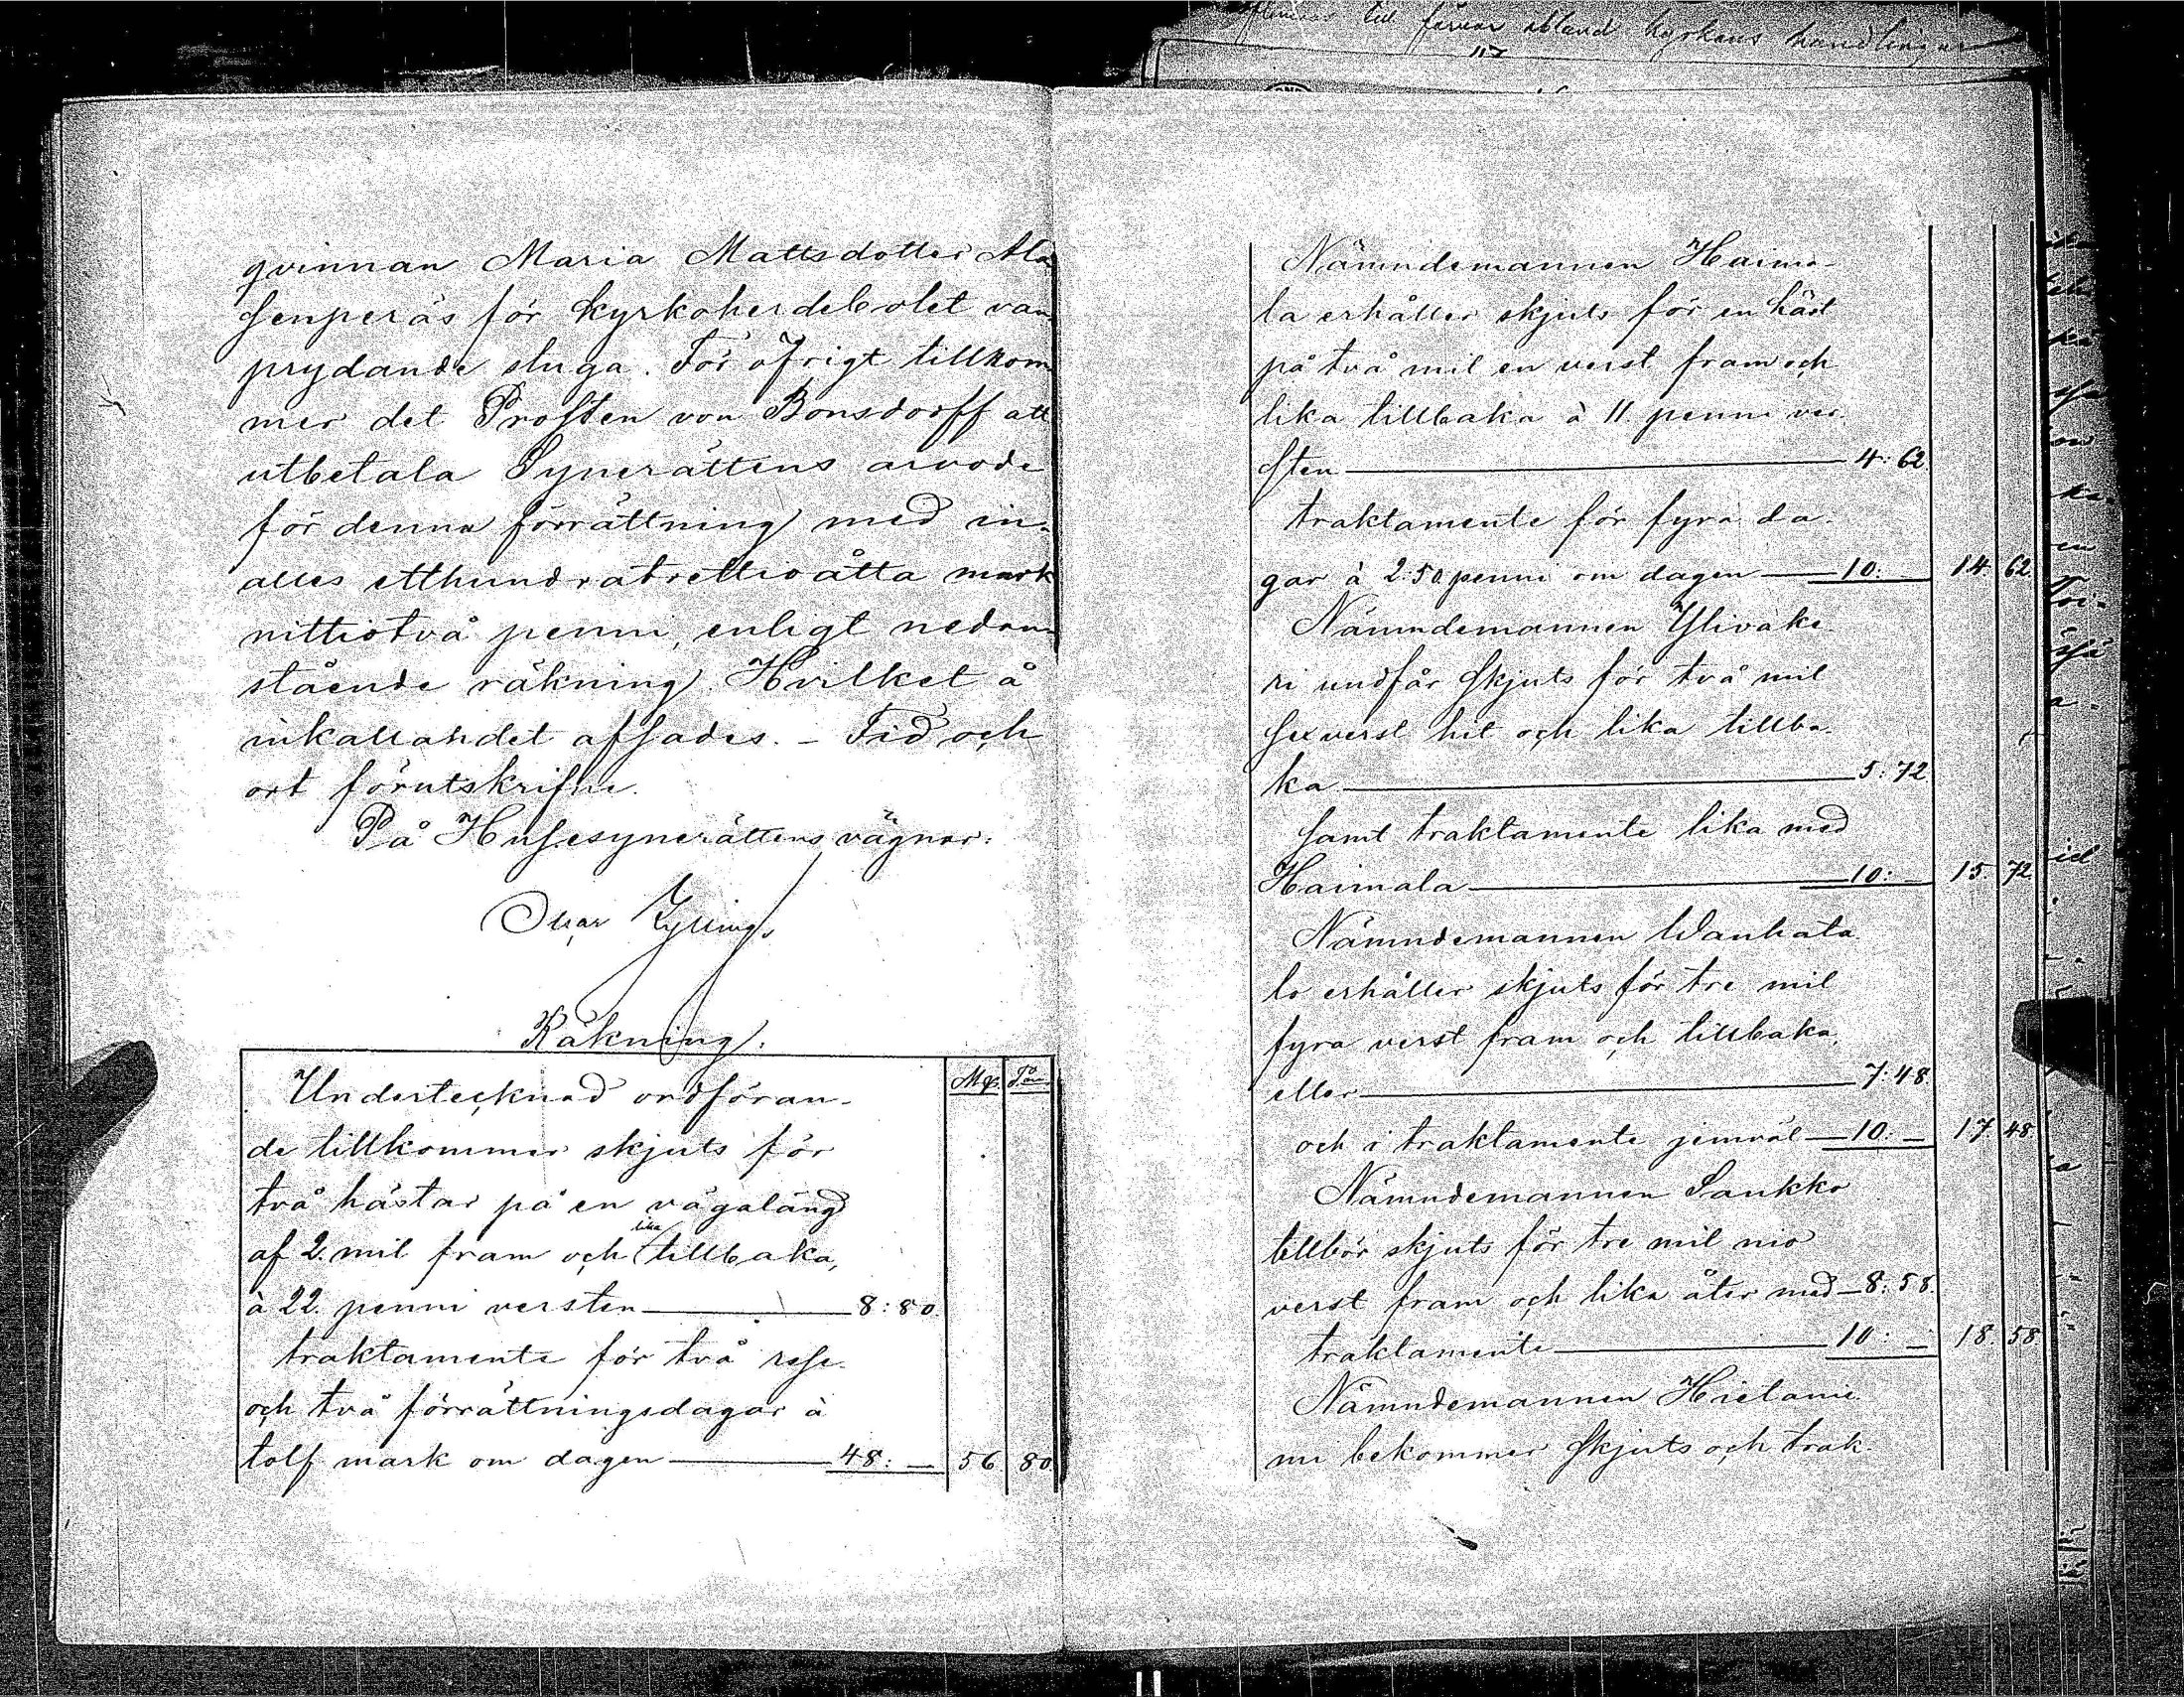 förvar ibland kyrkans handlingar
117
qvinnan Maria Mattsdotter Ala
senperäs för kyrkoherdebolet van
prydande stuga. För öfrigt tillkom
mer det Prosten von Bonsdorff att
utbetala Synerättens arvode
för denna förrättning med in-
alles etthundratrettioåtta mark
nittiotvå penni, enligt nedan-
stående räkning. Hvilket å
inkallandet afsades. – Tid och
ort förutskrifne.
På Husesynerättens vägnar:
Räkning:
Mp. Pen
Undertecknad ordföran-
de tillkommer skjuts för
två hästar på en vägalängd
lika
af 2. mil fram och tillbaka,
à 22. penni versten — 8: 80.
traktamente för två rese-
och två förrättningsdagar à
tolf mark om dagen — 48: — 56 80.
Nämndemannen Haima-
la erhåller skjuts för en häst
på två mil en verst fram och
lika tillbaka à 11. penni ver-
sten — 4: 62
traktamente för fyra da-
gar à 2.50 penni om dagen — 10: 14. 62.
Nämndemannen Ylivake-
ri undfår skjuts för två mil
sex verst hit och lika tillba-
ka — 5: 72
samt traktamente lika med
Haimala — 10: — 15 72.
Nämndemannen Wanhata-
lo erhåller skjuts för tre mil
fyra verst fram och tillbaka,
eller — 7: 48
och i traktamente jemväl — 10: — 17. 48.
Nämndemannen Saukko
tillbör skjuts för tre mil nio
verst fram och lika åter med — 8: 58.
traktamente — 10: — 18. 58.
Nämndemannen Hietanie-
mi bekommer skjuts och trak-